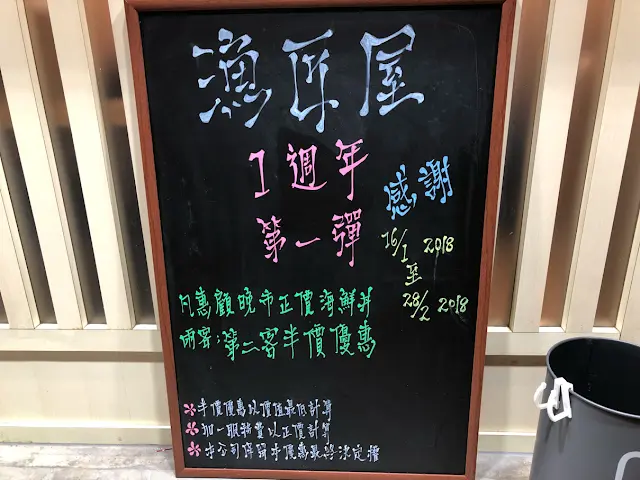 漁匠屋
1週年
感謝
第一彈
16/1 2018
至
28/2 2018
凡惠顧晚市正價海鮮丼
兩客:第二客半價優惠
*半價優惠以價值最低計算
*加一服務費以正價計算
*本公司保留本優惠最終決定權